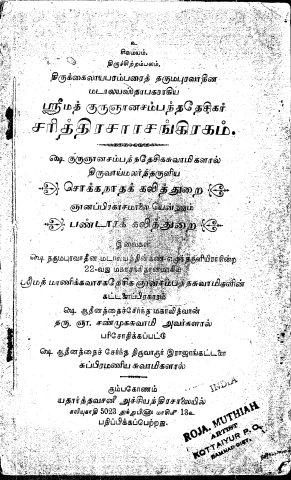 உ
சிவமயம்.
திருச்சிற்றம்பலம்.
திருக்கைலாயபரம்பரைத் தருமபுரவாதீன
மடாலயஸ்தாபகராகிய
ஸ்ரீமத் குருஞானசம்பந்ததேசிகர்
சரித்திரசாரசங்கிரகம்.
ஷெ குருஞானசம்பந்ததேசிகசுவாமிகளால்
திருவாய்மலர்ந்தருளிய
சொக்கநாதக் கலித்துறை
ஞானப்பிரகாசமாலை யென்னும்
பண்டாரக் கலித்துறை
இவைகள்
ஷெ தருமபுரவாதீன
22-வது
ஸ்ரீமத் மாணிக்கவாசகதேசிக ஞானசம்பந்தசுவாமிகளின்
கட்டளைப்பிரகாரம்
ஷெ ஆதீனத்தைச்சேர்ந்த மகாவித்வான்
தரு. ஞா. சண்முகசுவாமி அவர்களால்
பரிசோதிக்கப்பட்டு
ஷெ ஆதீனத்தைச் சேர்ந்த திருவாரூர் இராஜாங்கட்டளை
சுப்பிரமணிய சுவாமிகளால்
கும்பகோணம்
யதார்த்தவசனீ அச்சியந்திரசாலையில்
கலியுகாதி 5023
பதிப்பிக்கப்பெற்றது.
INDIA
ROJA. MUTHIAH
ARTIST
KOTTAIYUR P. O.
RAMNAD DIST.